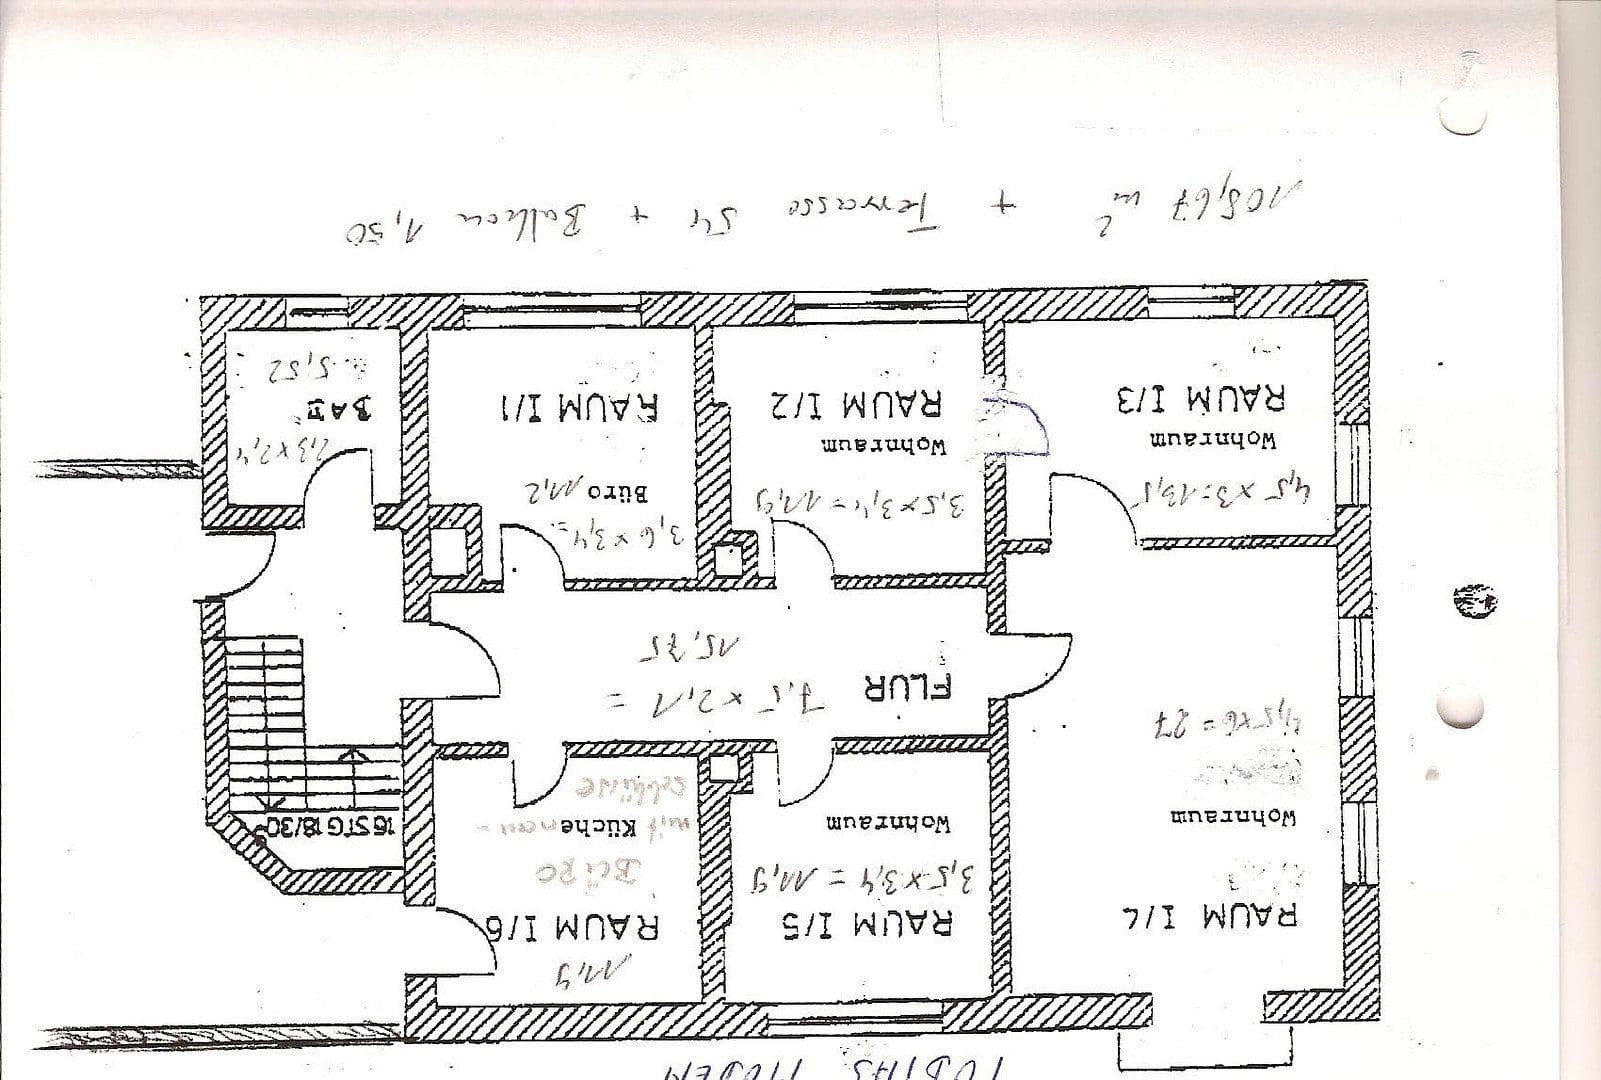 RAUM I/4
Wohnraum
4,5 x 6 = 27
RAUM I/5
3,5 x 3,4 = 11,9
Wohnraum
11,9
RAUM I/6
BÜRO
mit Küchen
16 STG 18/30
FLUR 7,5 x 2,1 =
15,75
4,5 x 3 = 13,5
Wohnraum
RAUM I/3
3,5 x 3,4 = 11,9
Wohnraum
RAUM I/2
3,6 x 3,4 =
Büro 11,2
RAUM I/1
2,3 x 2,4
BAD
5,52
108,67 m² + Terrasse 54 + Balkon 1,50